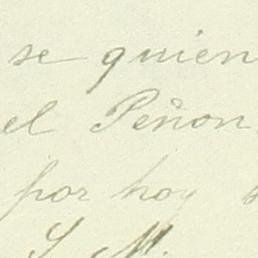 se quien
el Peñon.
por hoy
S. M.